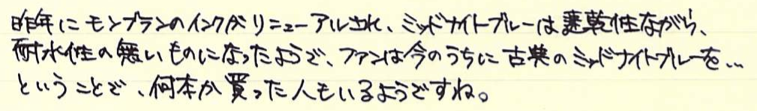 昨年にモンブランのインクがリニューアルされ、ミッドナイトブルーは速乾性ながら、
耐水性の無いものになったようで、ファンは今のうちに古典のミッドナイトブルーを…
ということで、何本か買った人もいるようですね。